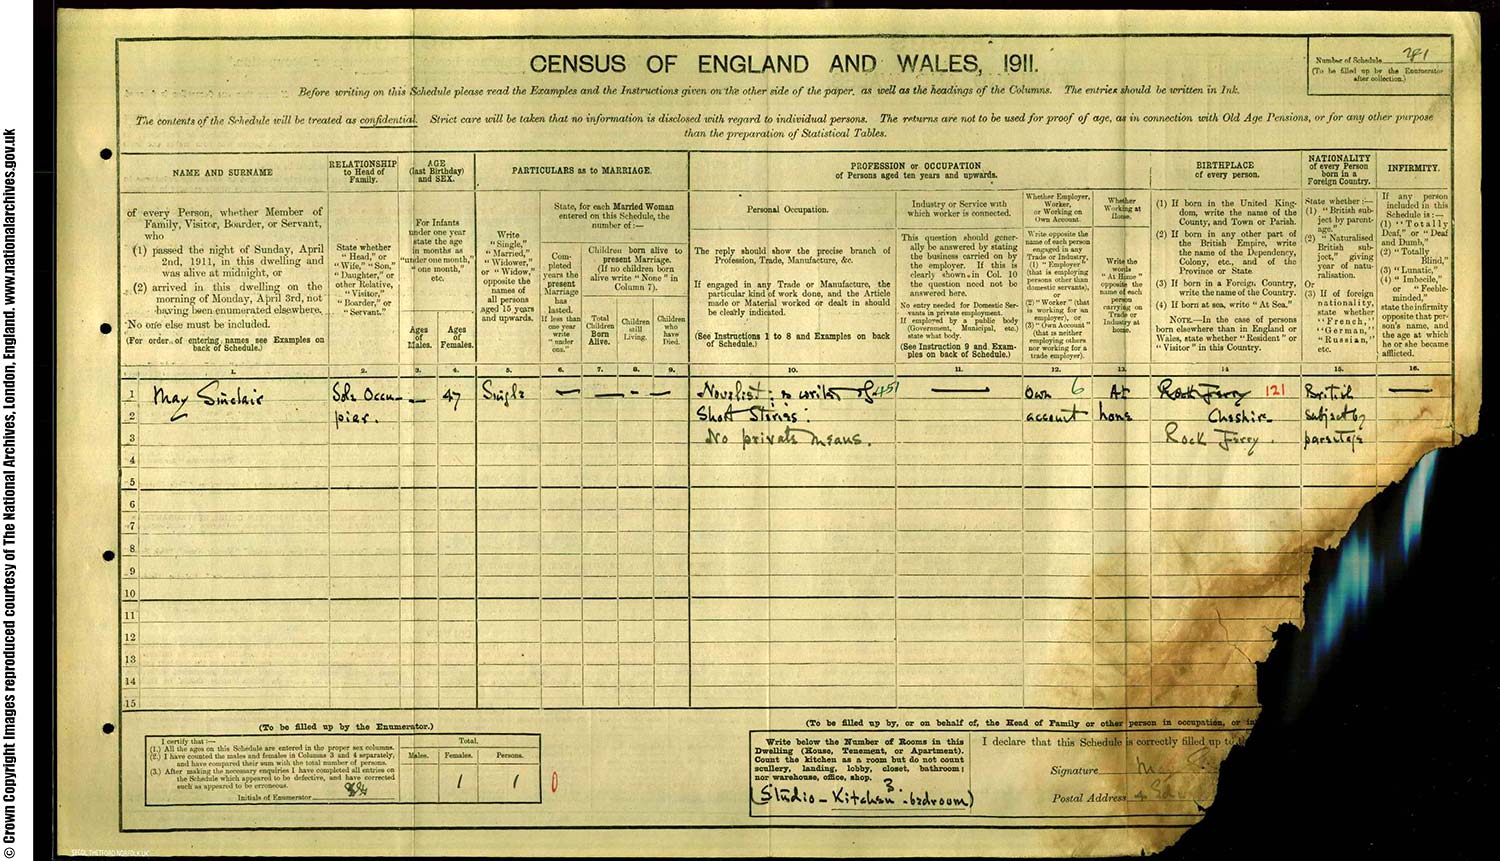 CENSUS OF ENGLAND AND WALES, 1911.
Number of Schedule 281
(To be filled up by the Enumerator
after collection.)
Before writing on this Schedule please read the Examples and the Instructions given on the other side of the paper, as well as the headings of the Columns. The entries should be written in Ink.
The contents of the Schedule will be treated as confidential. Strict care will be taken that no information is disclosed with regard to individual persons. The returns are not to be used for proof of age, as in connection with Old Age Pensions, or for any other purpose
than the preparation of Statistical Tables.
NAME AND SURNAME
of every Person, whether Member of
Family, Visitor, Boarder, or Servant,
who
(1) passed the night of Sunday, April
2nd, 1911, in this dwelling and
was alive at midnight, or
(2) arrived in this dwelling on the
morning of Monday, April 3rd, not
having been enumerated elsewhere.
No one else must be included.
(For order of entering names see Examples on
back of Schedule.)
RELATIONSHIP
to Head of
Family.
State whether
"Head," or
"Wife," "Son,"
"Daughter," or
other Relative,
"Visitor,"
"Boarder," or
"Servant."
AGE
(last Birthday)
and SEX.
For Infants
under one year
state the age
in months as
"under one month,"
"one month,"
etc.
Ages
of
Males.
Ages
of
Females.
PARTICULARS as to MARRIAGE.
Write
"Single,"
"Married,"
"Widower,"
or "Widow,"
opposite the
names of
all persons
aged 15 years
and upwards.
State, for each Married Woman
entered on this Schedule, the
number of :—
Com-
pleted
years the
present
Marriage
has
lasted.
If less than
one year
write
"under
one."
Children born alive to
present Marriage.
(If no children born
alive write "None" in
Column 7).
Total
Children
Born
Alive.
Children
still
Living.
Children
who
have
Died.
PROFESSION or OCCUPATION
of Persons aged ten years and upwards.
Personal Occupation.
The reply should show the precise branch of
Profession, Trade, Manufacture, &c.
If engaged in any Trade or Manufacture, the
particular kind of work done, and the Article
made or Material worked or dealt in should
be clearly indicated.
(See Instructions 1 to 8 and Examples on back
of Schedule.)
Industry or Service with
which worker is connected.
This question should gener-
ally be answered by stating
the business carried on by
the employer. If this is
clearly shown in Col. 10
the question need not be
answered here.
No entry needed for Domestic Ser-
vants in private employment.
If employed by a public body
(Government, Municipal, etc.)
state what body.
(See Instruction 9 and Exam-
ples on back of Schedule.)
Whether Employer,
Worker,
or Working on
Own Account.
Write opposite the
name of each person
engaged in any
Trade or Industry,
(1) "Employer"
(that is employing
persons other than
domestic servants),
or
(2) "Worker" (that
is working for an
employer), or
(3) "Own Account"
(that is neither
employing others
nor working for a
trade employer).
Whether
Working at
Home.
Write the
words
"At Home"
opposite the
name of each
person
carrying on
Trade or
Industry at
home.
BIRTHPLACE
of every person.
(1) If born in the United King-
dom, write the name of the
County, and Town or Parish.
(2) If born in any other part of
the British Empire, write
the name of the Dependency,
Colony, etc., and of the
Province or State.
(3) If born in a Foreign Country,
write the name of the Country.
(4) If born at sea, write "At Sea."
NOTE.—In the case of persons
born elsewhere than in England or
Wales, state whether "Resident" or
"Visitor" in this Country.
NATIONALITY
of every Person
born in a
Foreign Country.
State whether :—
(1) "British sub-
ject by parent-
age,"
(2) "Naturalised
British sub-
ject," giving
year of natu-
ralisation.
Or
(3) If of foreign
nationality,
state whether
"French,"
"German,"
"Russian,"
etc.
INFIRMITY.
If any person
included in this
Schedule is :—
(1) "Totally
Deaf," or "Deaf
and Dumb,"
(2) "Totally
Blind,"
(3) "Lunatic,"
(4) "Imbecile,"
or "Feeble-
minded,"
state the infirmity
opposite that per-
son's name, and
the age at which
he or she became
afflicted.
1. 2. 3. 4. 5. 6. 7. 8. 9. 10. 11. 12. 13. 14 15. 16.
1 May Sinclair Sole Occu- — 47 Single — — - — Novelist; & writer of 451 — Own 6 At Rock Ferry 121 British —
2 pier. Short Stories: account home Cheshire. subject by
3 No private means. Rock Ferry. parentage
4
5
6
7
8
9
10
11
12
13
14
15
(To be filled up by the Enumerator.)
I certify that :—
(1.) All the ages on this Schedule are entered in the proper sex columns.
(2.) I have counted the males and females in Columns 3 and 4 separately,
and have compared their sum with the total number of persons.
(3.) After making the necessary enquiries I have completed all entries on
the Schedule which appeared to be defective, and have corrected
such as appeared to be erroneous.
Initials of Enumerator
Total.
Males. Females. Persons.
1 1 0
(To be filled up by, or on behalf of, the Head of Family or other person in occupation, or in
Write below the Number of Rooms in this
Dwelling (House, Tenement, or Apartment).
Count the kitchen as a room but do not count
scullery, landing, lobby, closet, bathroom;
nor warehouse, office, shop.
3
(Studio - Kitchen - bedroom)
I declare that this Schedule is correctly filled up to
Signature May
Postal Address 4
© Crown Copyright Images reproduced courtesy of The National Archives, London, England. www.nationalarchives.gov.uk